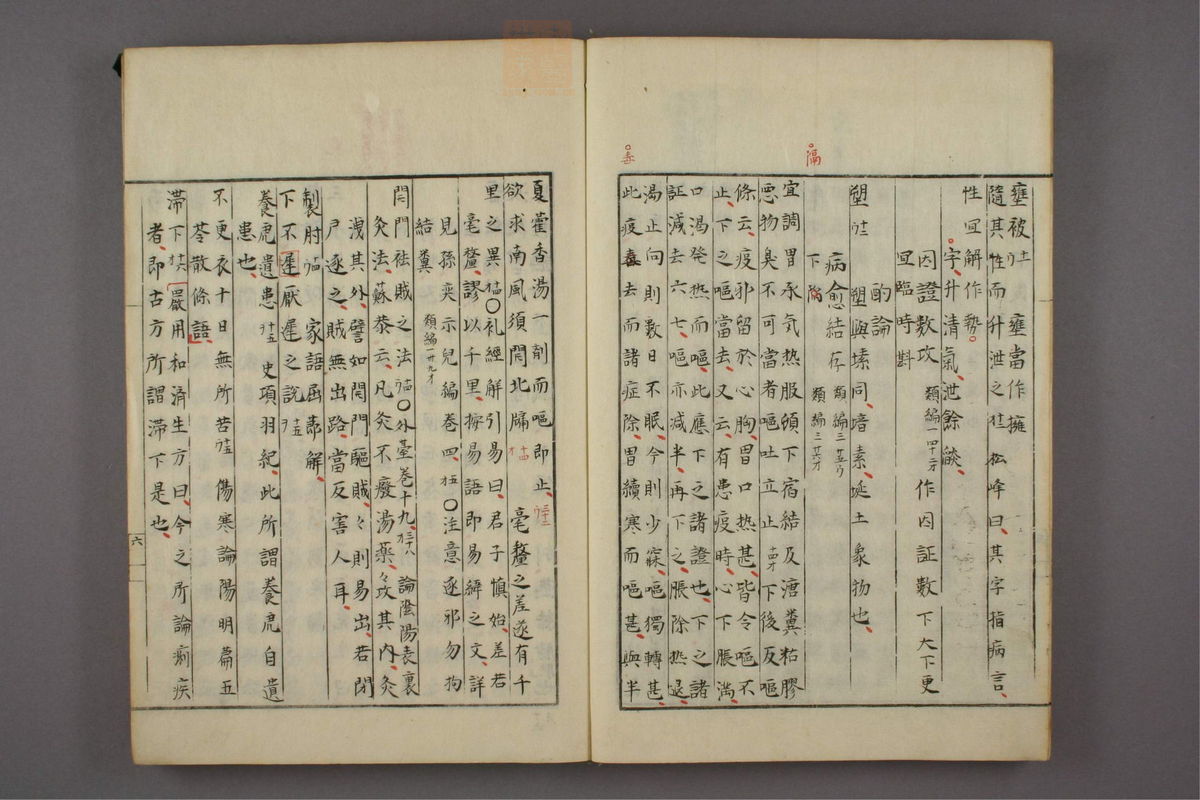 壅被 壅當作擁
隨其性而升泄之 松峰曰其字指病言
性宜解作勢
字升清氣泄餘燄
因證数攻 類編一 作因証数下大下更
宜臨時斟
酌論
塑 塑與塐同音素埏土象物也
病愈結存 類編三
下
宜調胃承気热服頓下宿結及溏糞粘膠
悪物臭不可當者嘔吐立止 下後反嘔
條云疫邪留於心胸胃口热甚皆令嘔不
止下之嘔當去又云有患疫時心下脹満
口渴発热而嘔此應下之諸證也下之諸
証減去六七嘔亦減半再下之脹除热退
渴止向則数日不眠今則少寐嘔獨轉甚
此疫毒去而諸症除胃續寒而嘔甚與半
隔
毒
夏藿香湯一剤而嘔即止
欲求南風須開北牖 毫釐之差遂有千
里之異 礼經解引易曰君子慎始差若
毫釐謬以千里按易語即易緯之文詳
見孫奕示兒編巻四 注意逐邪勿拘
結糞 類編一
開門祛賊之法 外臺巻十九 論陰陽表裏
灸法蘇恭云凡灸不廢湯薬々攻其内灸
洩其外譬如開門驅賊々則易出若閉
戸逐之賊無出路當反害人耳
製肘 家語屈節解
下不遲厭遲之説
養虎遺患 史項羽紀此所謂養虎自遺
患也
不更衣十日無所苦 傷寒論陽明篇五
苓散條語
滞下 嚴用和済生方曰今之所論痢疾
者即古方所謂滞下是也
六